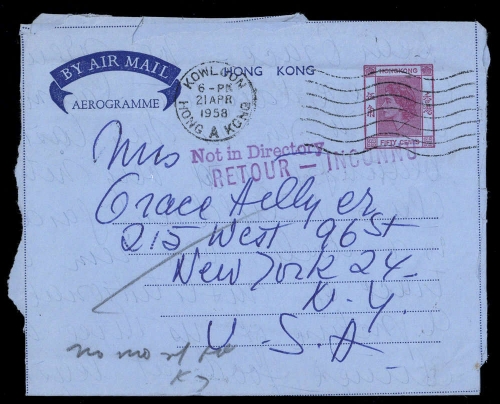 BY AIR MAIL
AEROGRAMME
HONG KONG
KOWLOON
6-PM
21 APR
1958
HONG A KONG
HONGKONG
FIFTY CENTS
Not in Directory
RETOUR — INCONNU
Mrs
Grace Hellyer
215 West 96 St
New York 24
N.Y.
U.S.A
no no of